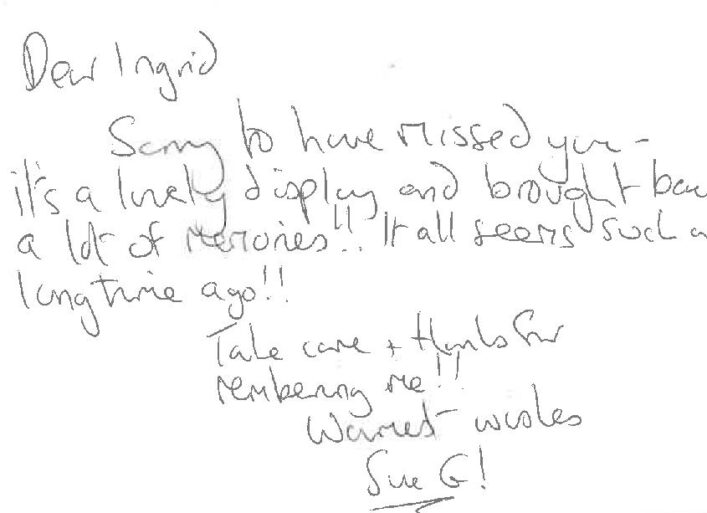 Dear Ingrid
Sorry to have missed you -
it's a lovely display and brought bac
a lot of memories!! It all seems such a
long time ago!!
Take care + thanks for
rembering me!!
Warmest wishes
Sue G!